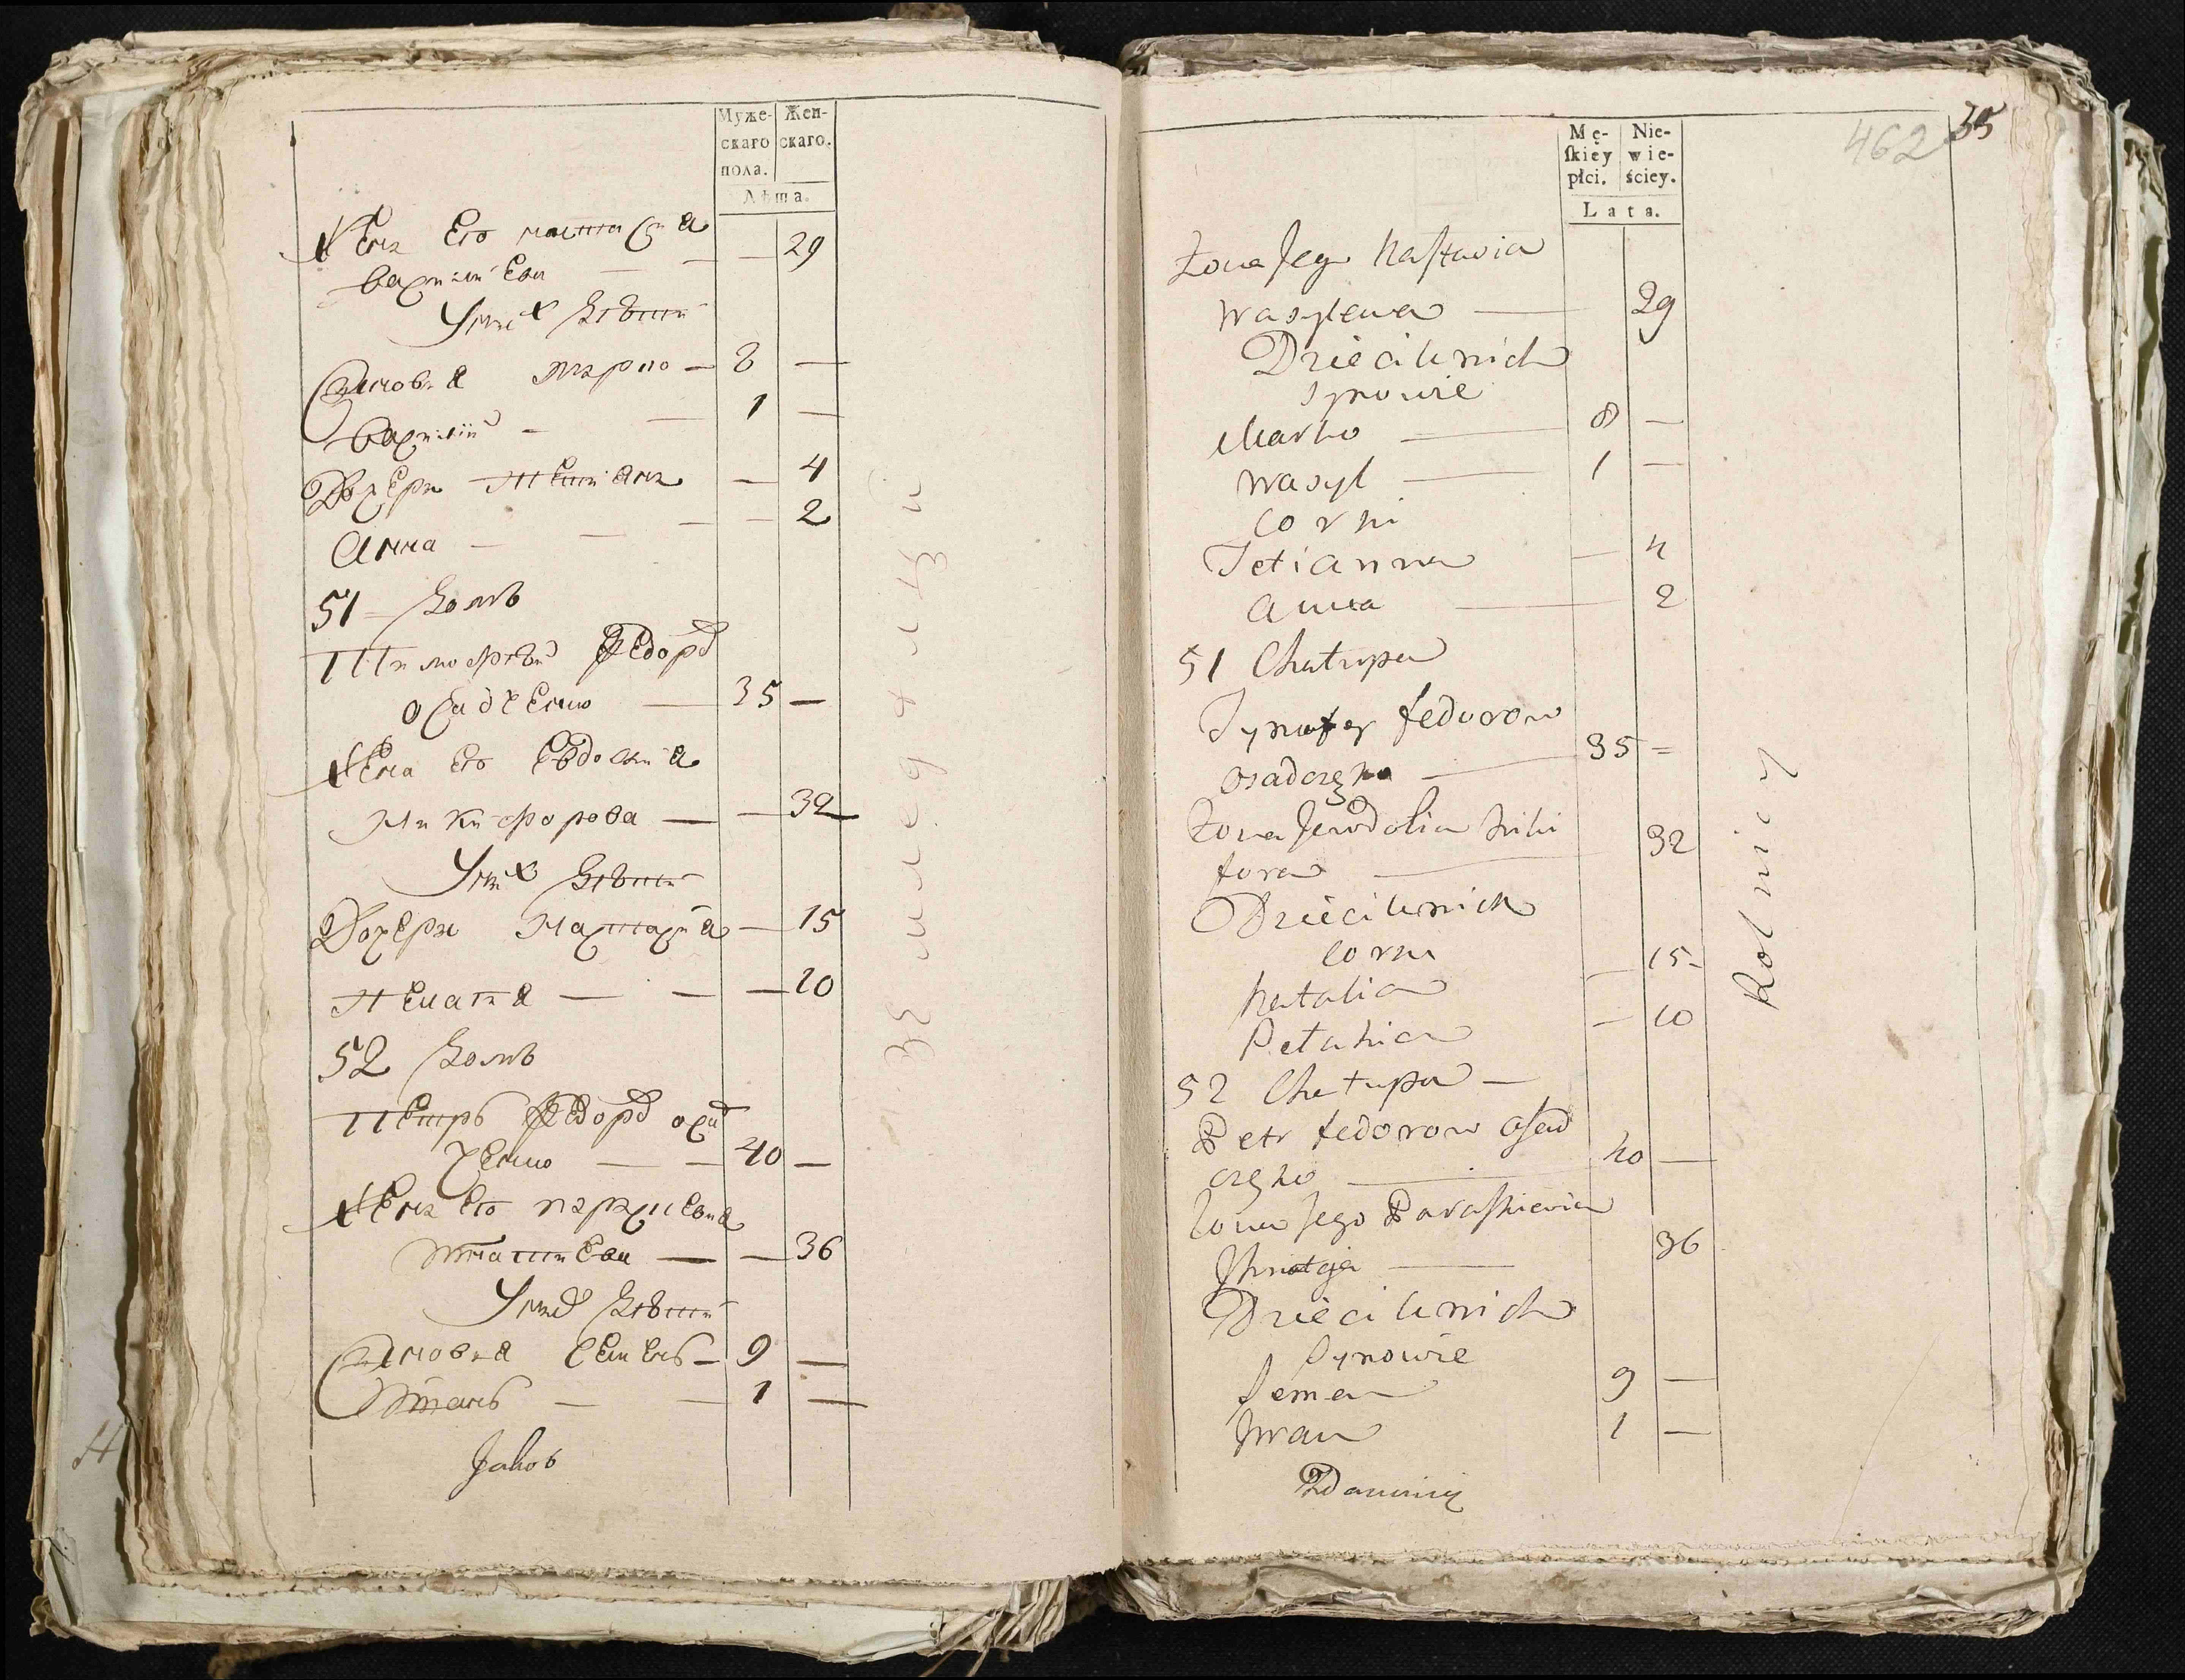 Муже-
скаго
пола.
Жен-
скаго.
Лѣта.
Жена Его настасия
васильева — — 29
У них дѣти
Синовья марко — 8 —
василий — — 1 —
Дочери татияна — 4
Анна — — — — 2
51 домъ
Тимофѣй Федоров
осадченко — 35 —
Жена Его Евдокия
Никифорова — — 32
У них дѣти
Дочери Наталия — 15
Пелагия — — — 10
52 домъ
Петръ Федоров осад
ченко — — 40 —
Жена Его параскевия
игнатиева — — 36
У них дѣти
Синовья Семенъ — 9 —
Иванъ — — 1 —
Jakob
земледелцы
462 35
Mę-
skiey
płci.
Nie-
wie-
ściey.
Lata.
Żona Jego Nastasia
Wasylewa — 29
Dzieci u nich
Synowie
Marko — 8 —
Wasyl — 1 —
Corki
Tetianna — 4
Anna — 2
51 Chatupa
Tymofey fedorow
osadczęko — 35 =
Żona Jewdokia Niki
forowa — 32
Dzieci u nich
Corki
Natalia — 15 -
Pelahia — 10
52 Chatupa —
Petr fedorow osad
częko — 40 —
Żona Jego Paraskiewia
Jhnatyja — 36
Dzieci u nich
Synowie
Semen 9 —
Jwan 1 —
Rolnicy